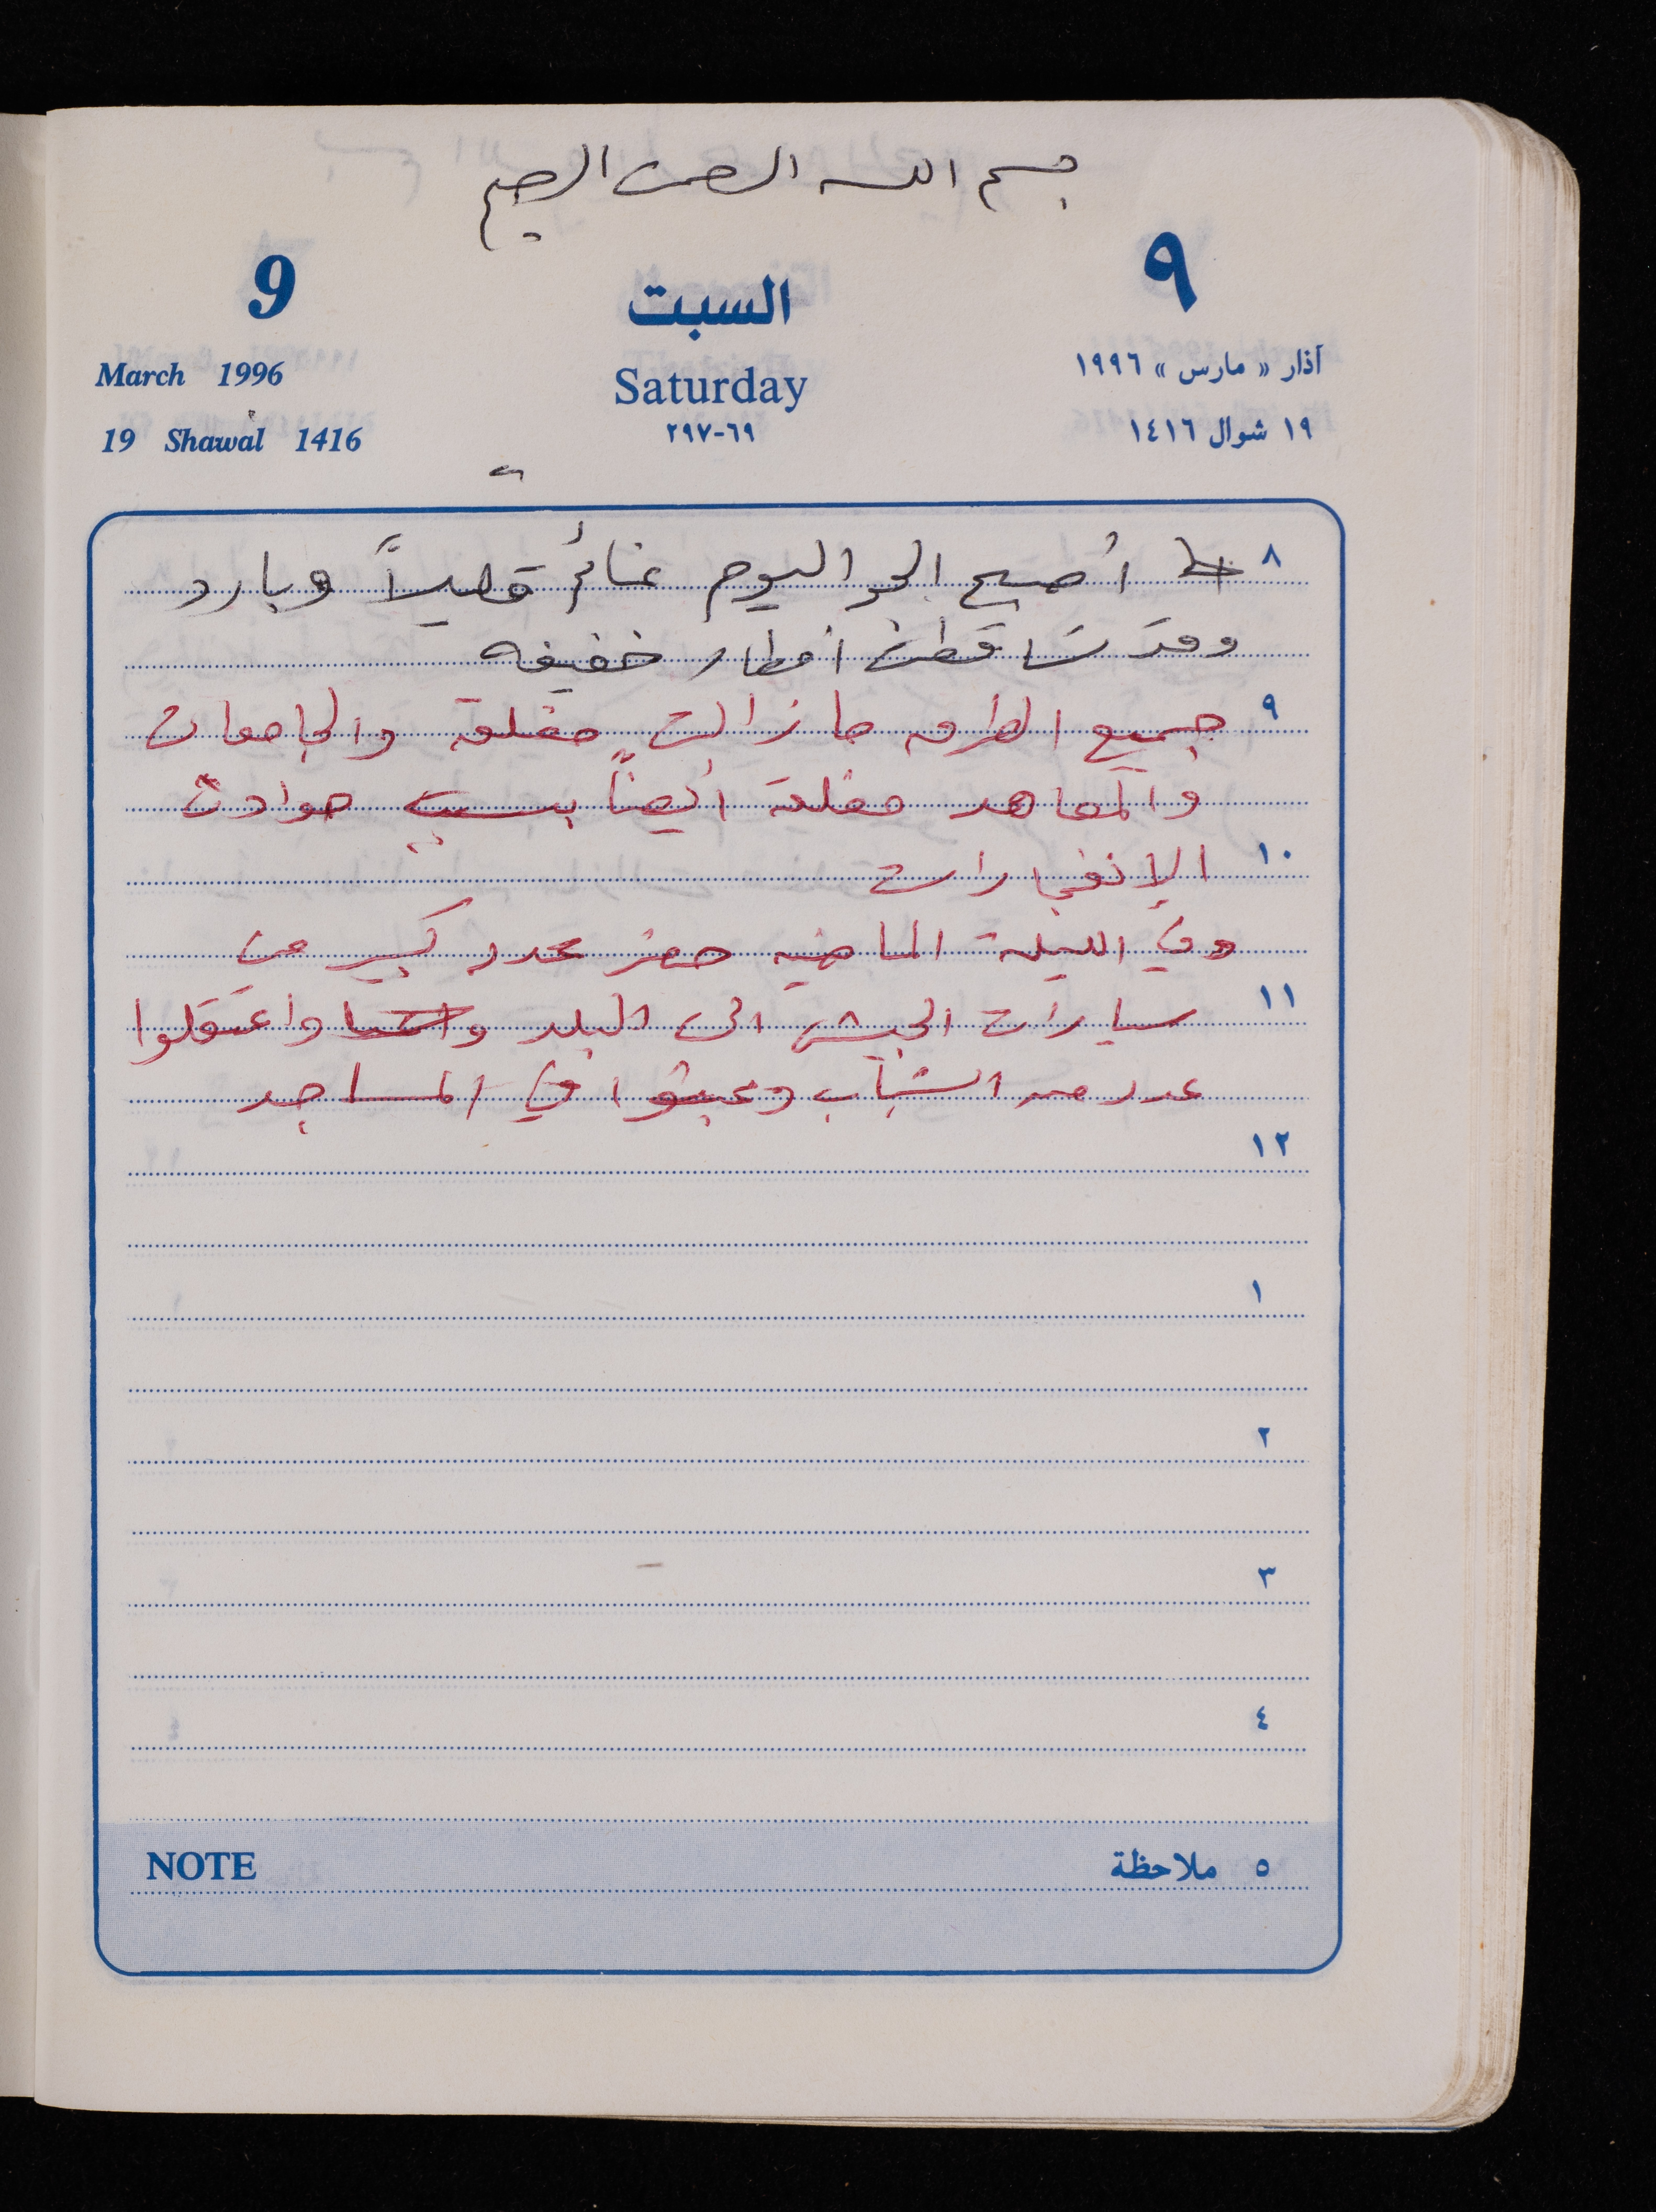 بسم الله الرحمن الرحيم
9 السبت ٩
March 1996 Saturday آذار « مارس » ١٩٩٦
19 Shawal 1416 ٢٩٧-٦٩ ١٩ شوال ١٤١٦
٨ أصبح الجو اليوم غائم قليلاً وبارد
وقد تساقطت امطار خفيفه
٩ جميع الطرق ما زالت مغلقة والجامعات
والمعاهد مغلقة أيضاً بسبب حوادث
١٠ الإنفجارات
وفي الليلة الماضيه حضر عدد كبير من
١١ سيارات الجيش الى البلد واعتقلوا
عدد من الشباب وعبثوا في المساجد
١٢
١
٢
٣
٤
NOTE ٥ ملاحظة